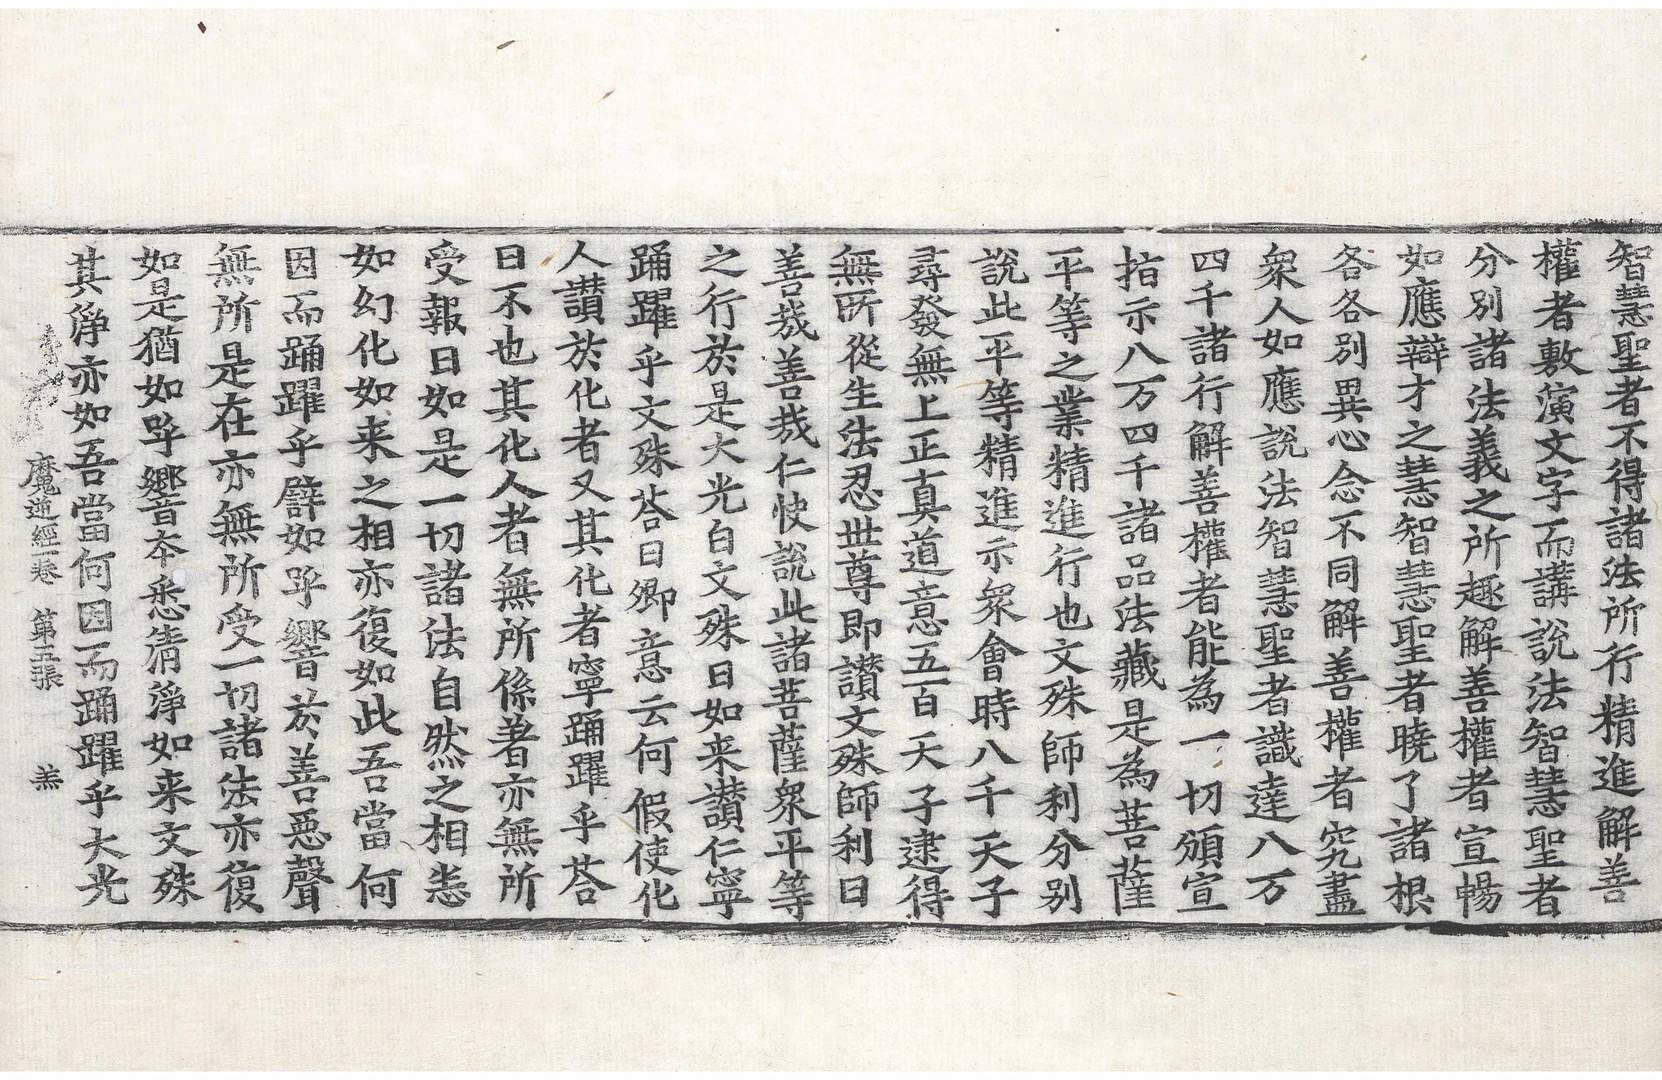 智慧聖者不得諸法所行精進解善
權者敷演文字而講說法智慧聖者
分別諸法義之所趣解善權者宣暢
如應辯才之慧智慧聖者曉了諸根
各各別異心念不同解善權者究盡
衆人如應說法智慧聖者識達八万
四千諸行解善權者能為一切頒宣
指示八万四千諸品法藏是為菩薩
平等之業精進行也文殊師利分別
說此平等精進示衆會時八千天子
尋發無上正真道意五百天子逮得
無所從生法忍世尊即讃文殊師利曰
善哉善哉仁快說此諸菩薩衆平等
之行於是大光白文殊曰如来讃仁寧
踊躍乎文殊荅曰卿意云何假使化
人讃於化者又其化者寧踊躍乎荅
曰不也其化人者無所係著亦無所
受報曰如是一切諸法自然之相悉
如幻化如来之相亦復如此吾當何
因而踊躍乎譬如呼響音於善惡聲
無所是在亦無所受一切諸法亦復
如是猶如呼響音本悉清淨如来文殊
其淨亦如吾當何因而踊躍乎大光
魔逆經一卷　第五張　羔